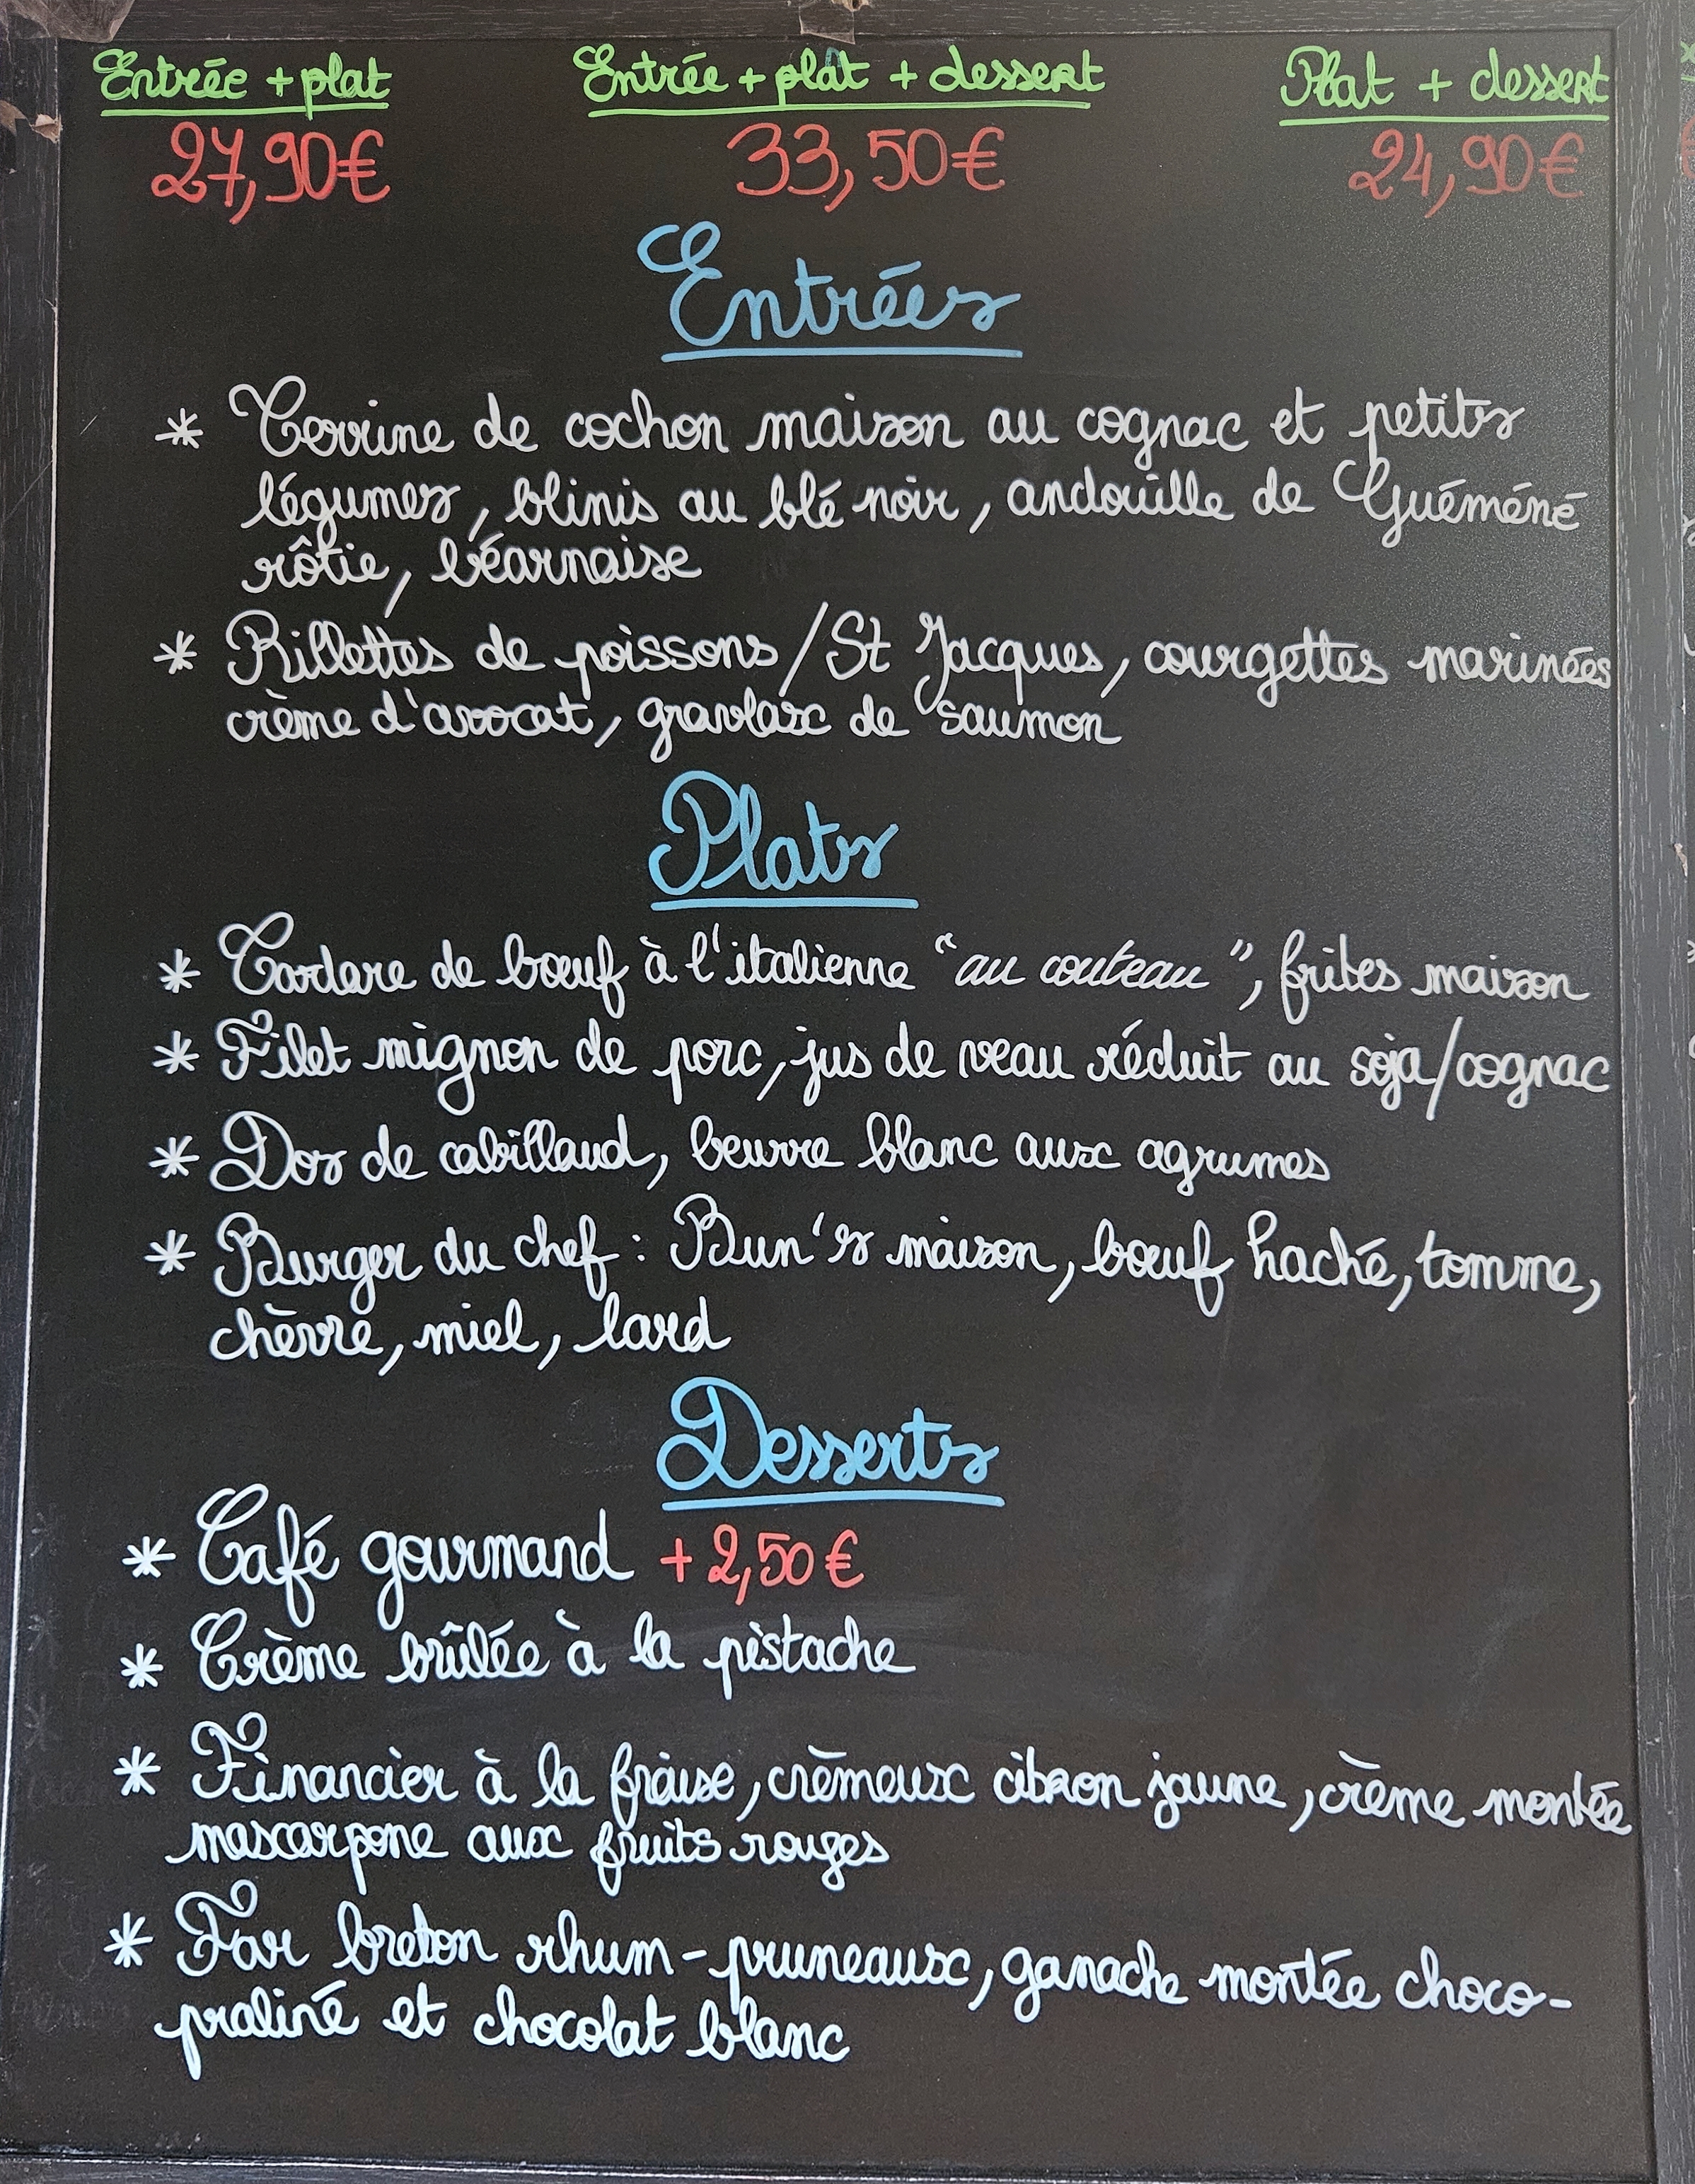 Entrée + plat Entrée + plât + dessert Plat + dessert
27,90€ 33,50€ 24,90€
Entrées
* Terrine de cochon maison au cognac et petits
légumes, blinis au blé noir, andouille de Guéméné
rôtie, béarnaise
* Rillettes de poissons/St Jacques, courgettes marinées
crème d'avocat, gravlax de saumon
Plats
* Tartare de bœuf à l'italienne "au couteau", frites maison
* Filet mignon de porc, jus de veau réduit au soja/cognac
* Dos de cabillaud, beurre blanc aux agrumes
* Burger du chef : Bun's maison, bœuf haché, tomme,
chèvre, miel, lard
Desserts
* Café gourmand +2,50€
* Crème brûlée à la pistache
* Financier à la fraise, crèmeux citron jaune, crème montée
mascarpone aux fruits rouges
* Far breton rhum-pruneaux, ganache montée choco-
praliné et chocolat blanc